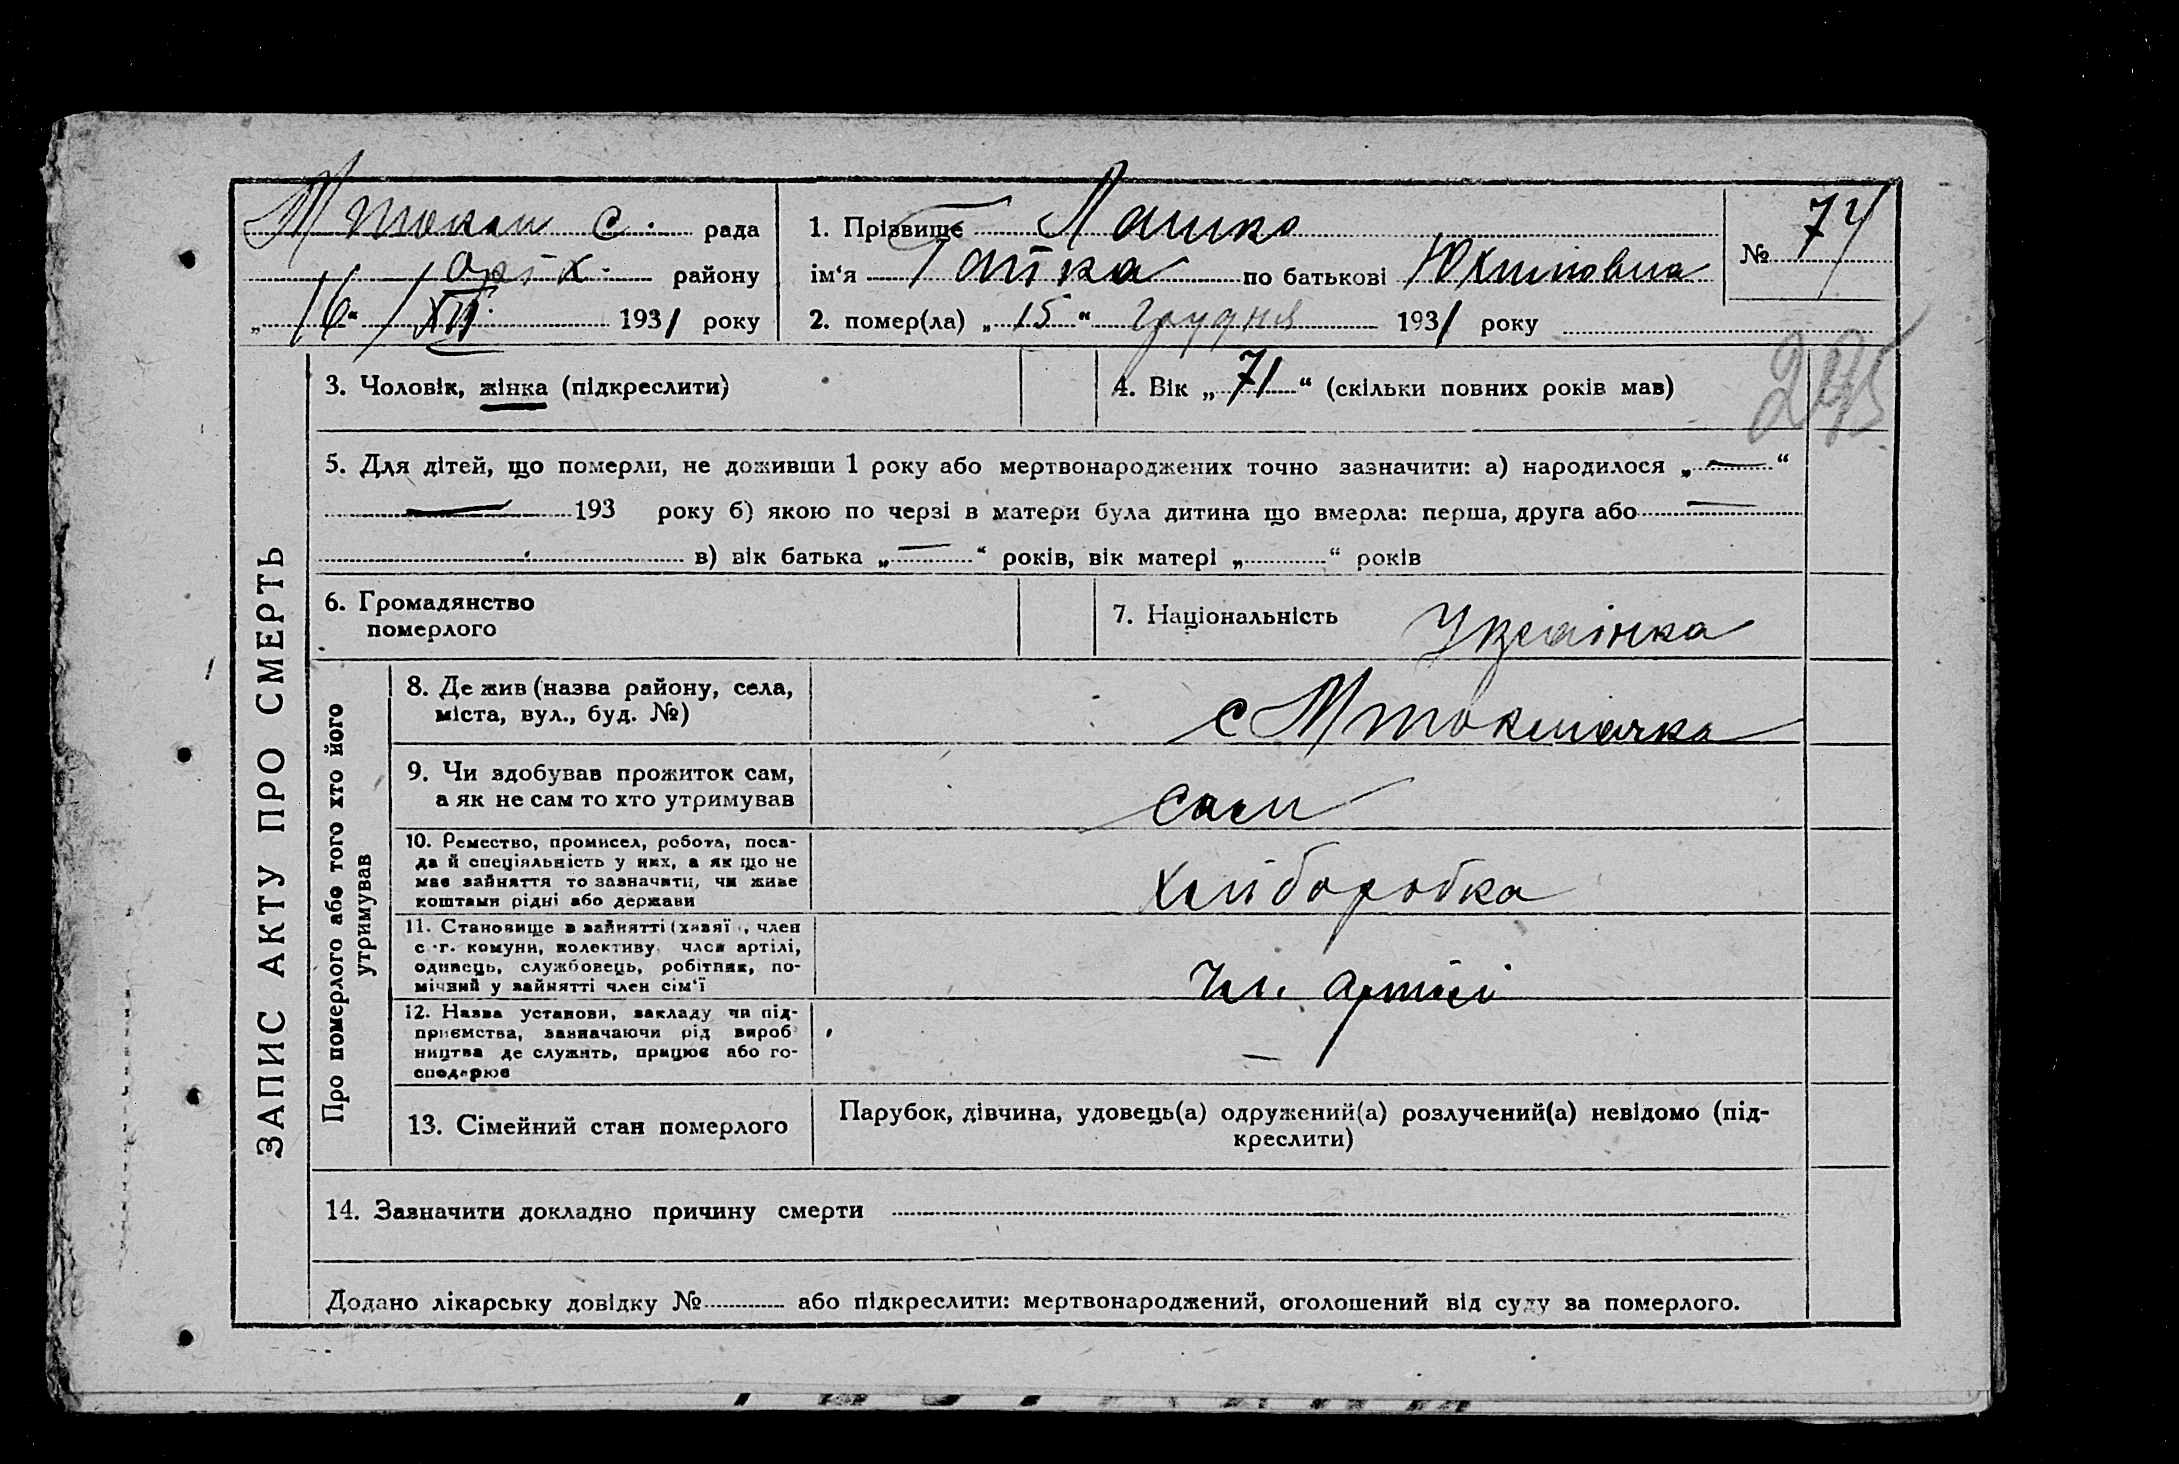 М токм с. рада
Оріх. району
„16“ XII 1931 року
1. Прізвище Лашко
ім‘я Гапка по батькові Юхимовна
№ 74
2. помер(ла) „15“ грудня 1931 року
3. Чоловік, жінка (підкреслити)
4. Вік „71“ (скільки повних років мав)
5. Для дітей, що померли, не доживши 1 року або мертвонароджених точно зазначити: а) народилося „—“
— 193 року б) якою по черзі в матери була дитина що вмерла: перша, друга або —
в) вік батька „—“ років, вік матері „ “ років
6. Громадянство
померлого
7. Національність Українка
ЗАПИС АКТУ ПРО СМЕРТЬ
Про померлого або того хто його
утримував
8. Де жив (назва району, села,
міста, вул., буд. №)
с М токмачка
9. Чи здобував прожиток сам,
а як не сам то хто утримував
сам
10. Ремество, промисел, робота, поса-
да й спеціяльність у них, а як що не
має зайняття то зазначити, чи живе
коштами рідні або держави
хліборобка
11. Становище в зайнятті (хазяї , член
с.-г. комуни, колективу, член артілі,
одинець, службовець, робітник, по-
мічний у зайнятті член сім‘ї
чл. артілі
12. Назва установи, закладу чи під-
приємства, зазначаючи рід вироб
ництва де служить, працює або го-
сподарює
—
13. Сімейний стан померлого
Парубок, дівчина, удовець(а) одружений(а) розлучений(а) невідомо (під-
креслити)
14. Зазначити докладно причину смерти
Додано лікарську довідку № або підкреслити: мертвонароджений, оголошений від суду за померлого.